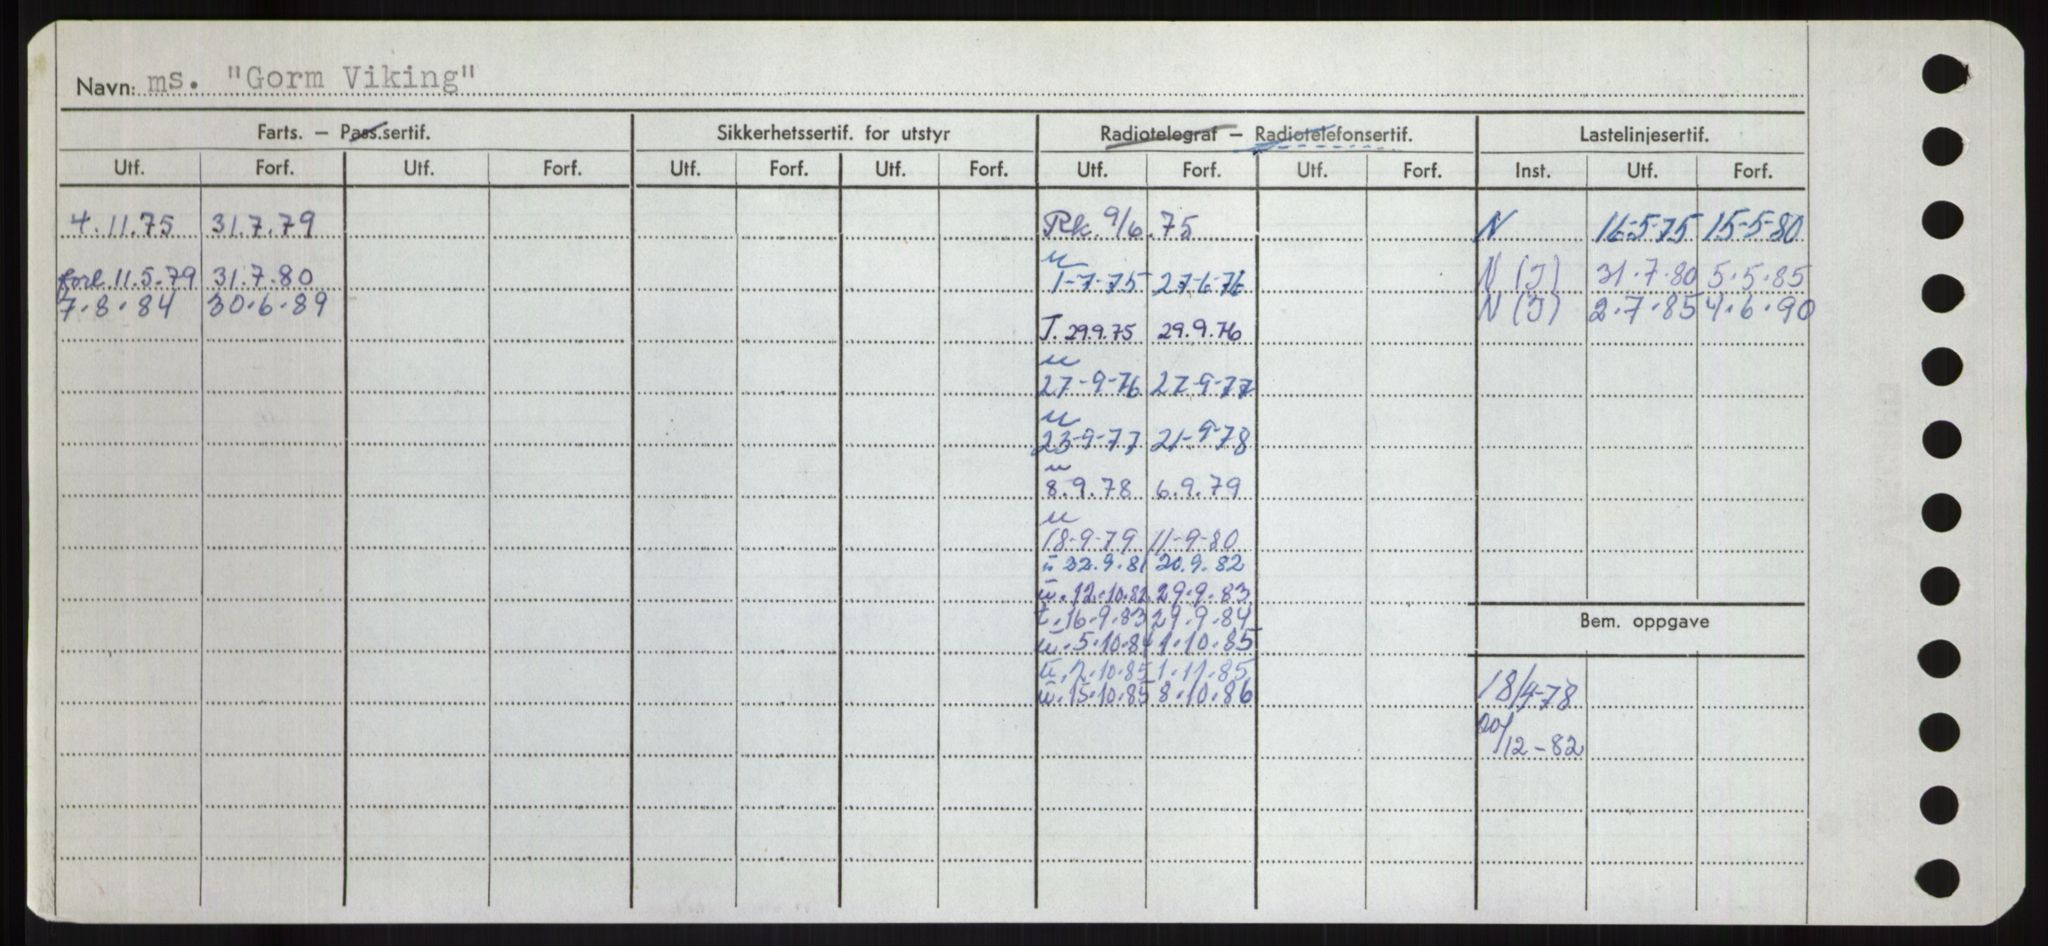 Navn: ms. "Gorm Viking"
Farts. — Pass.sertif. Sikkerhetssertif. for utstyr Radiotelegraf — Radiotelefonsertif. Lastelinjesertif.
Utf. Forf. Utf. Forf. Utf. Forf. Utf. Forf. Utf. Forf. Utf. Forf. Inst. Utf. Forf.
4.11.75 31.7.79 Rk. 9/6.75 N 16-5-75 15-5-80
forl. 11.5.79 31.7.80 u 1-7-75 27-6-76 N (J) 31.7.80 5.5.85
7.8.84 30.6.89 N (J) 2.7.85 4.6.90
J. 29.9.75 29.9.76
u
27-9-76 27-9-77
u
23-9-77 21-9-78
u
8.9.78 6.9.79
u
18-9-79 11-9-80
u 22.9.81 20.9.82
u. 12.10.82 29.9.83
t. 16.9.83 29.9.84
Bem. oppgave
u. 5.10.84 1.10.85
u. 2.10.85 1.11.85
u. 15.10.85 8.10.86
18/4-78
20/12-82